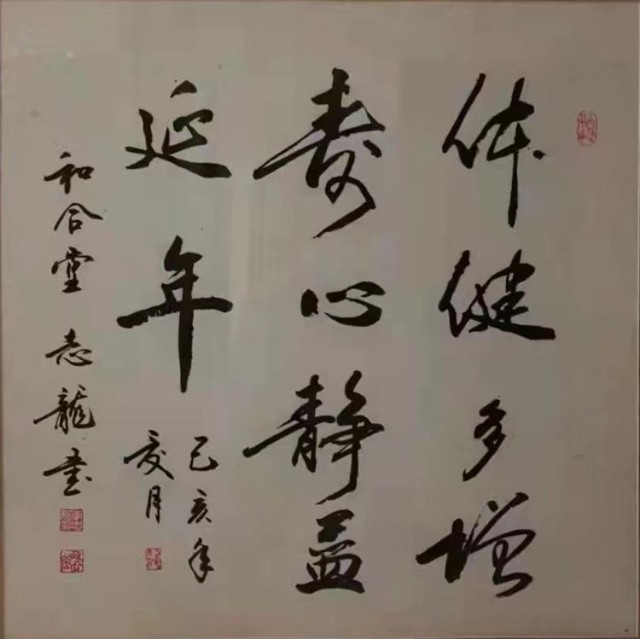 体健多增
寿心静益
延年
己亥年
夏月
和合堂 志龍書